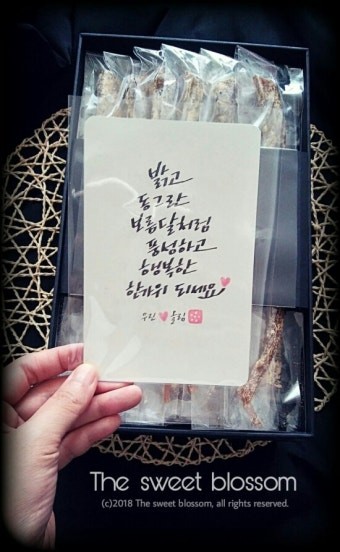 밝고
동그란
보름달처럼
풍성하고
행복한
한가위 되세요
The sweet blossom
(c)2018 The sweet blossom, all rights reserved.